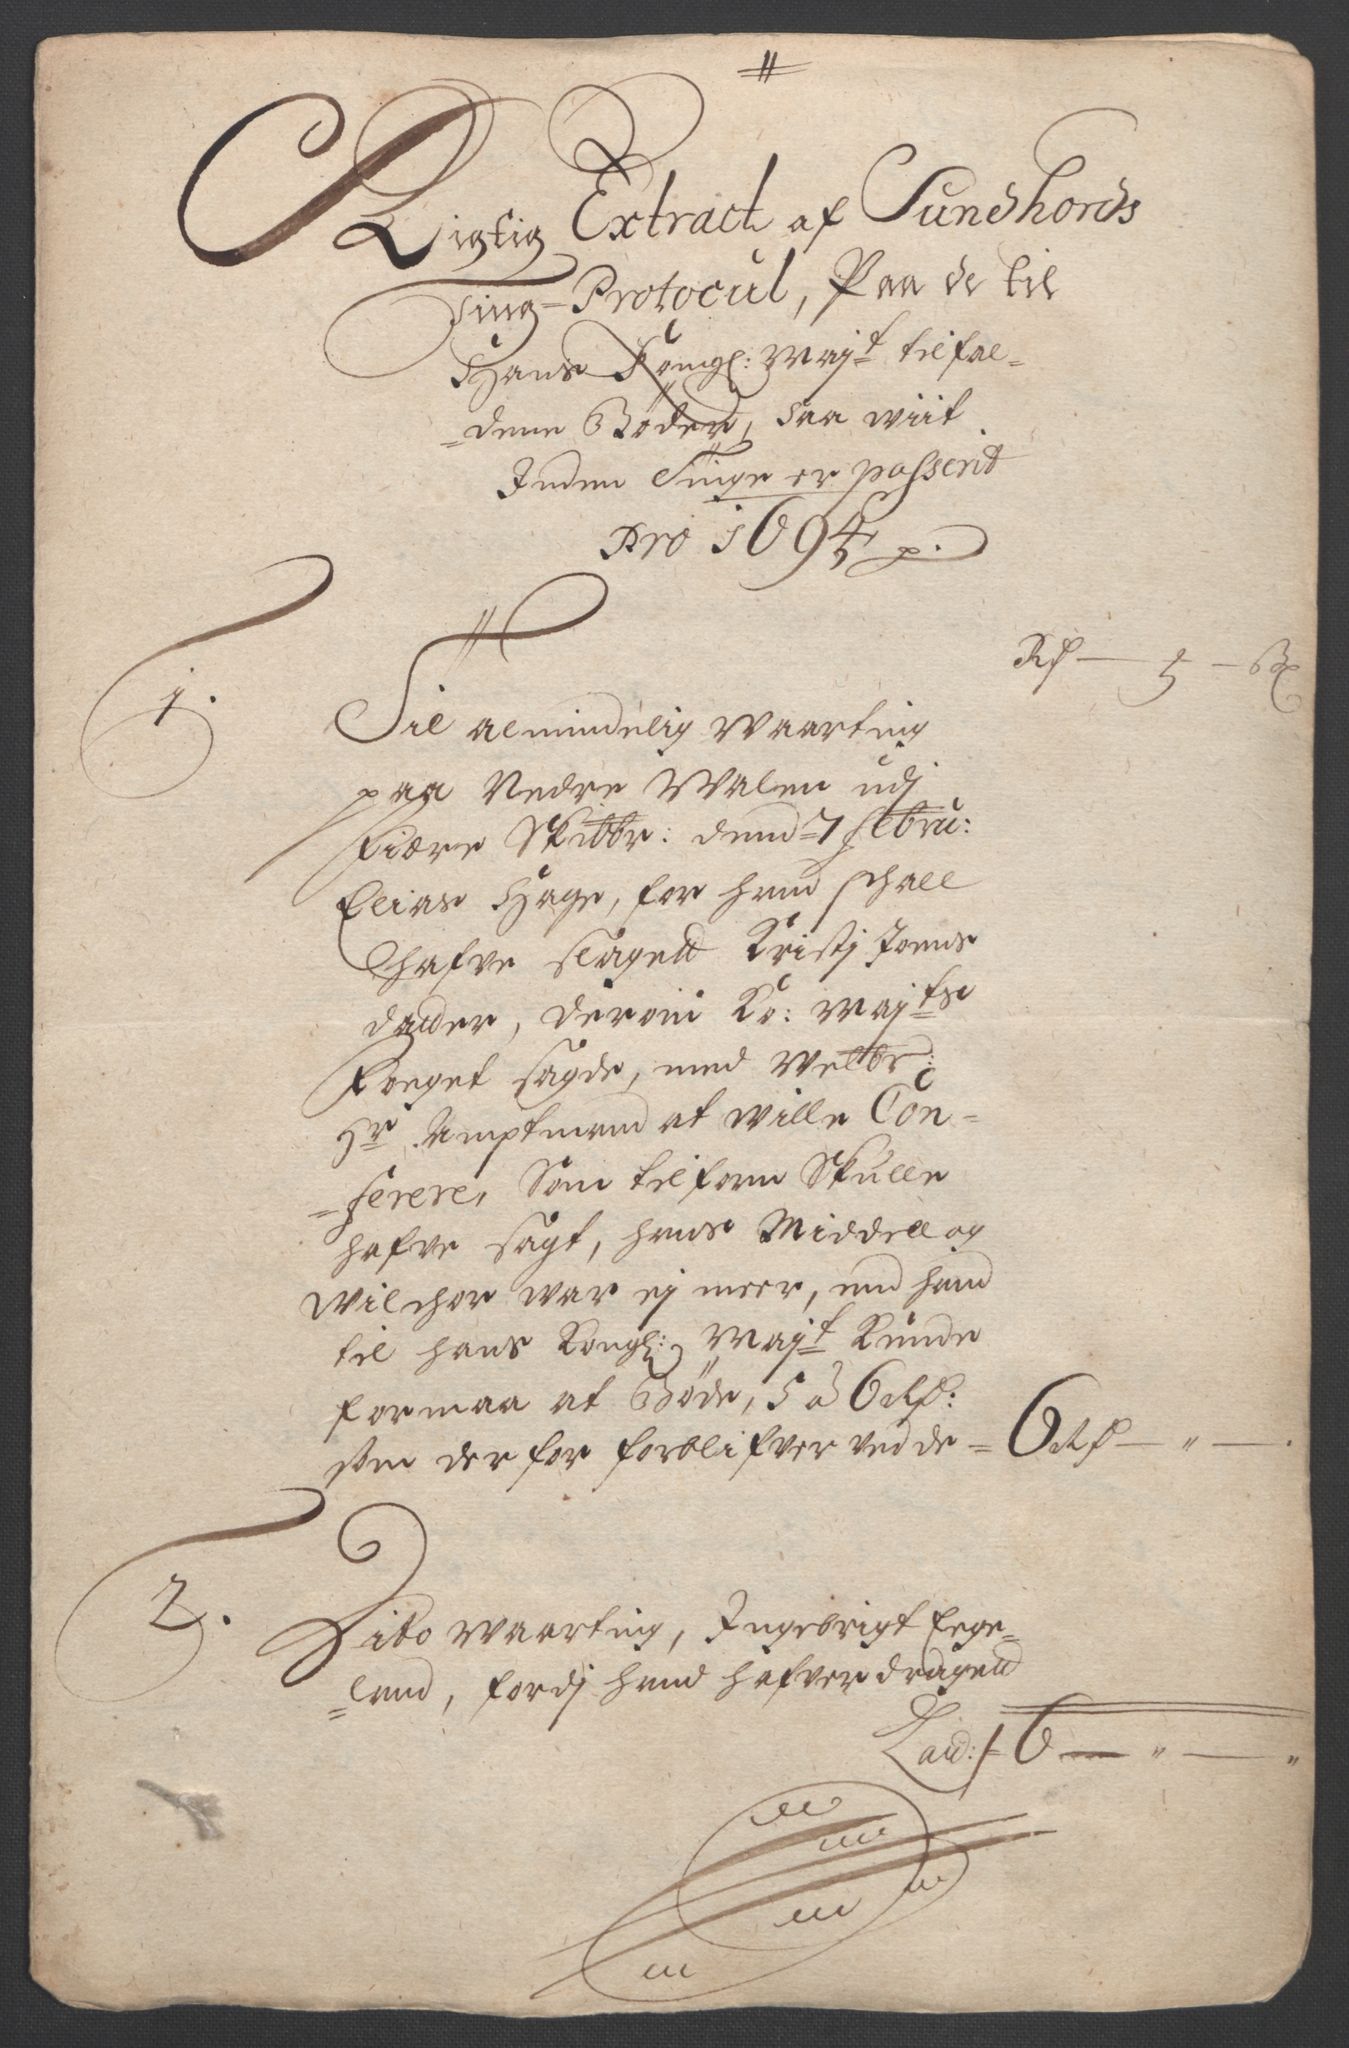 Rigtig Extract af Sundhords
Ting-Protocul, Paa de til
Hans Kongl: Mayt tilfal-
=dene Bøder, saa wiit
Inden Tinge er passerit
Pro 1694 p.
1. Rd — ƷƷ — ß
Til almindelig Waarting
paa Nedre Walen udj
Fiære Skibbr: dend 7 Febru:
Elias Hage, for hand schall
hafve slagett Kristj Joens
daater, derom Ko: Maytts
Foeget sagde, med Welbr:
Hr Amptmand at wille Con-
=ferere, Som tilforn Skulle
hafve sagt, hans Middel og
Wilchor war ej meer, end hand
til hans Kongl: Mayt kunde
formaa at Bøde, 5 a 6 Rd:
som der for forblifver ved de = 6 Rd — " — .
2. Dito Waarting, Ingebrigt Eege-
=land, fordj hand hafver dragett
Lat: 6 — " — "